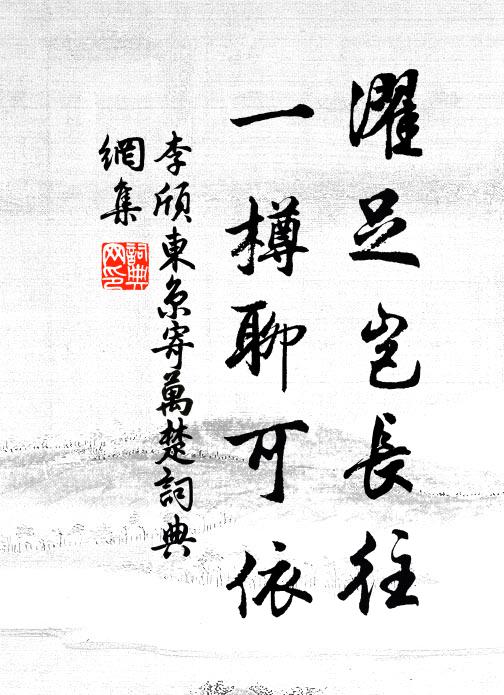 濯足豈長往
一樽聊可依
李頎東京寄萬楚詞典
網集
詞典
网印